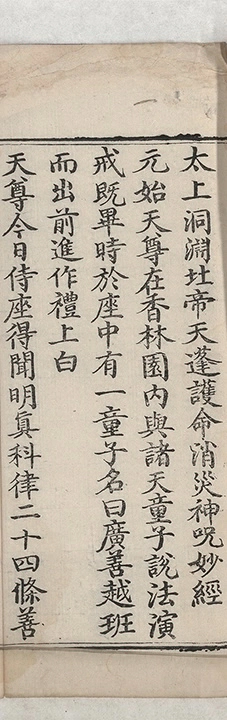 太上洞淵北帝天蓬護命消災神呪妙經
元始天尊在香林園內與諸天童子說法演
戒既畢時於座中有一童子名曰廣善越班
而出前進作禮上白
天尊今日侍座得聞明真科律二十四條善